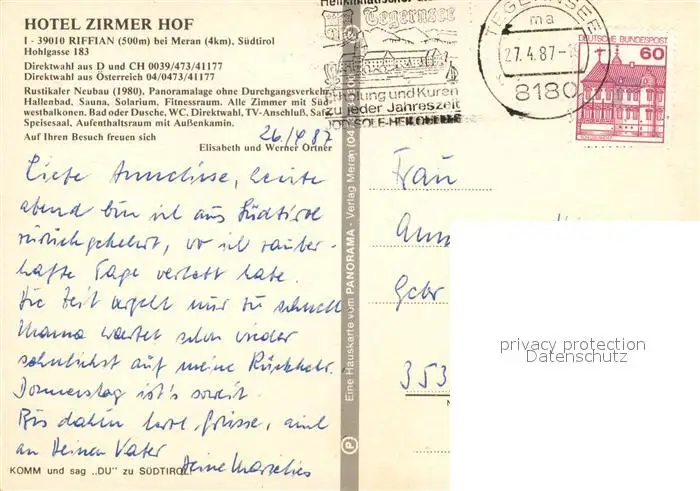 HOTEL ZIRMER HOF
I - 39010 RIFFIAN (500m) bei Meran (4km), Südtirol
Hohlgasse 183
Direktwahl aus D und CH 0039/473/41177
Direktwahl aus Österreich 04/0473/41177
Rustikaler Neubau (1980), Panoramalage ohne Durchgangsverkehr
Hallenbad, Sauna, Solarium, Fitnessraum. Alle Zimmer mit Süd-
westbalkonen, Bad oder Dusche, WC, Direktwahl, TV-Anschluß, Safe
Speisesaal, Aufenthaltsraum mit Außenkamin.
Auf Ihren Besuch freuen sich
Elisabeth und Werner Ortner
26/4 87
Liebe Anneliese, heute
abend bin ich aus Südtirol
zurückgekehrt, wo ich zauber-
hafte Tage verlebt habe.
Die Zeit vergeht nur zu schnell
Mama wartet schon wieder
sehnlichst auf meine Rückkehr.
Donnerstag ist's soweit.
Bis dahin herzl. Grüsse, auch
an Deinen Vater
Deine
KOMM und sag „DU" zu SÜDTIROL!
Eine Hauskarte vom PANORAMA - Verlag Meran (04
P
Tegernsee
und Kuren
zu jeder Jahreszeit
JOD-SOLE-HEILQUELLE
TEGERNSEE
ma
27.4.87-1
8180
DEUTSCHE BUNDESPOST
60
Frau
Ann
Gebr
353
privacy protection
Datenschutz